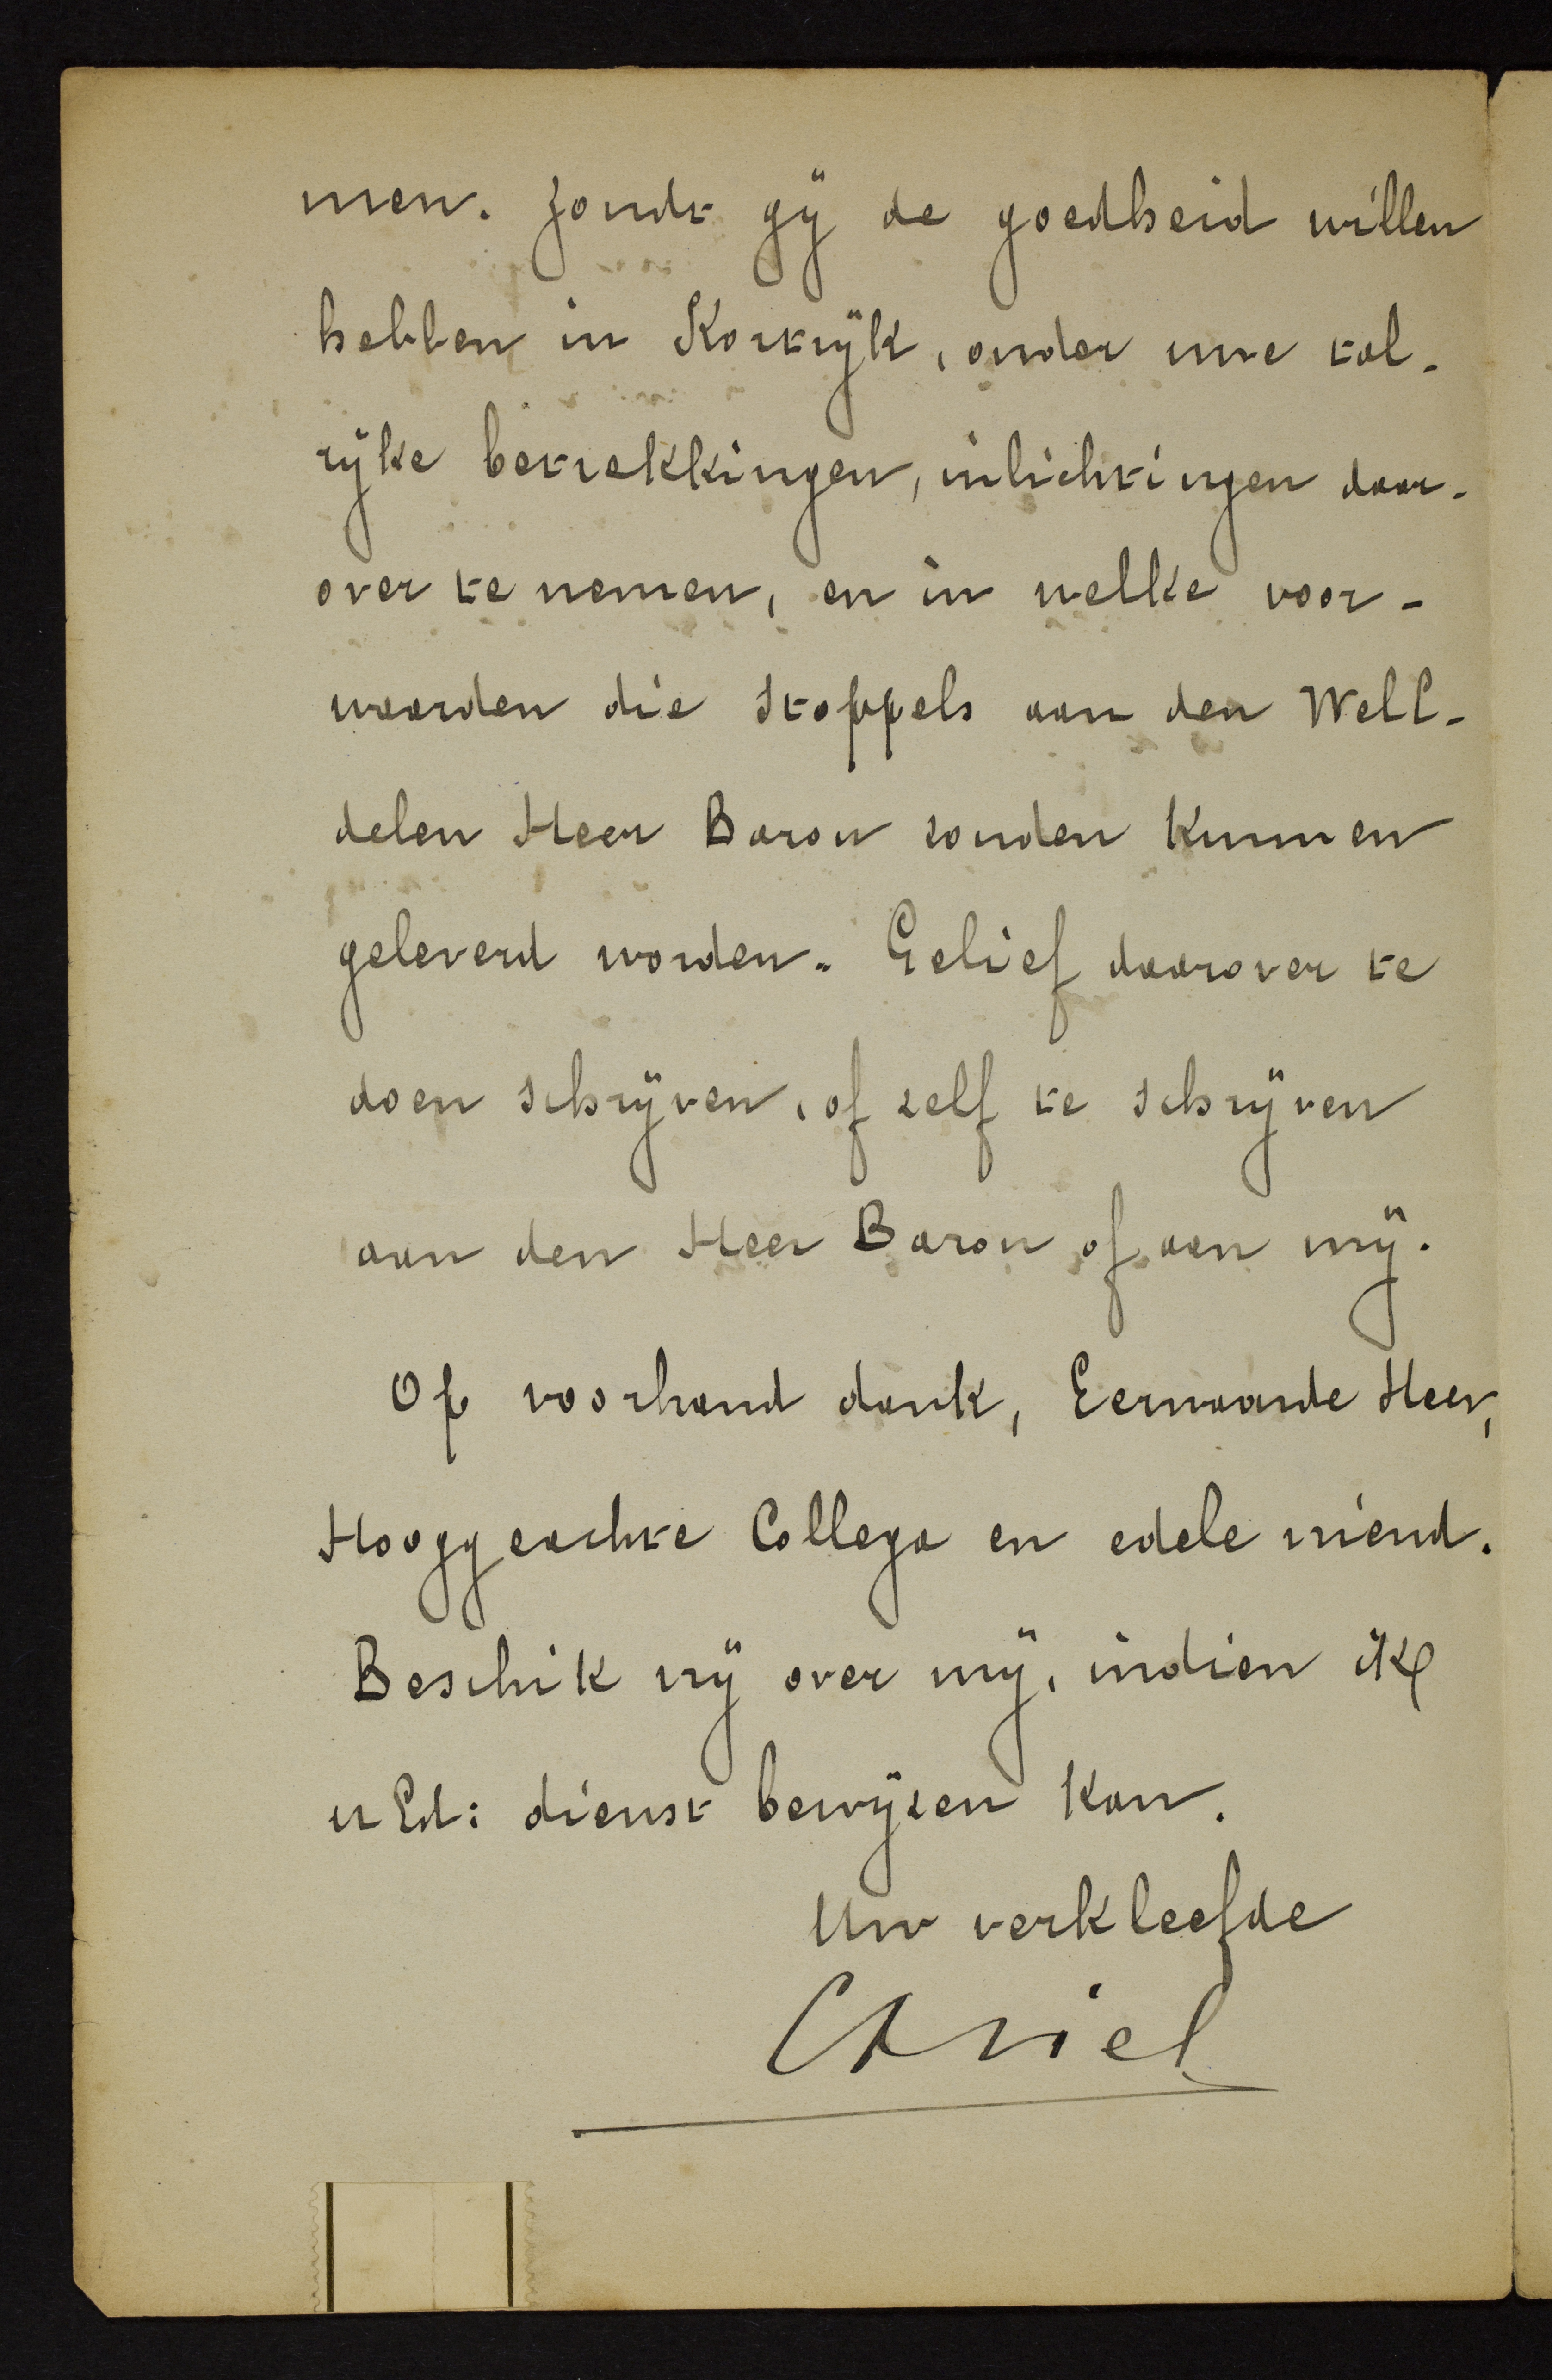 men. Zoudt gÿ de goedheid willen
hebben in Kortrÿk, onder uwe tal-
rÿke betrekkingen, inlichtingen daar-
over te nemen, en in welke voor-
waarden die stoppels aan den WelE-
delen Heer Baron zouden kunnen
geleverd worden. Gelief daarover te
doen schrÿven, of zelf te schrÿven
aan den Heer Baron of aan mÿ.
Op voorhand dank, Eerwaarde Heer,
Hooggeachte Collega en edele vriend.
Beschik vrÿ over mÿ, indien ik
u Ed: dienst bewÿzen kan.
Uw verkleefde